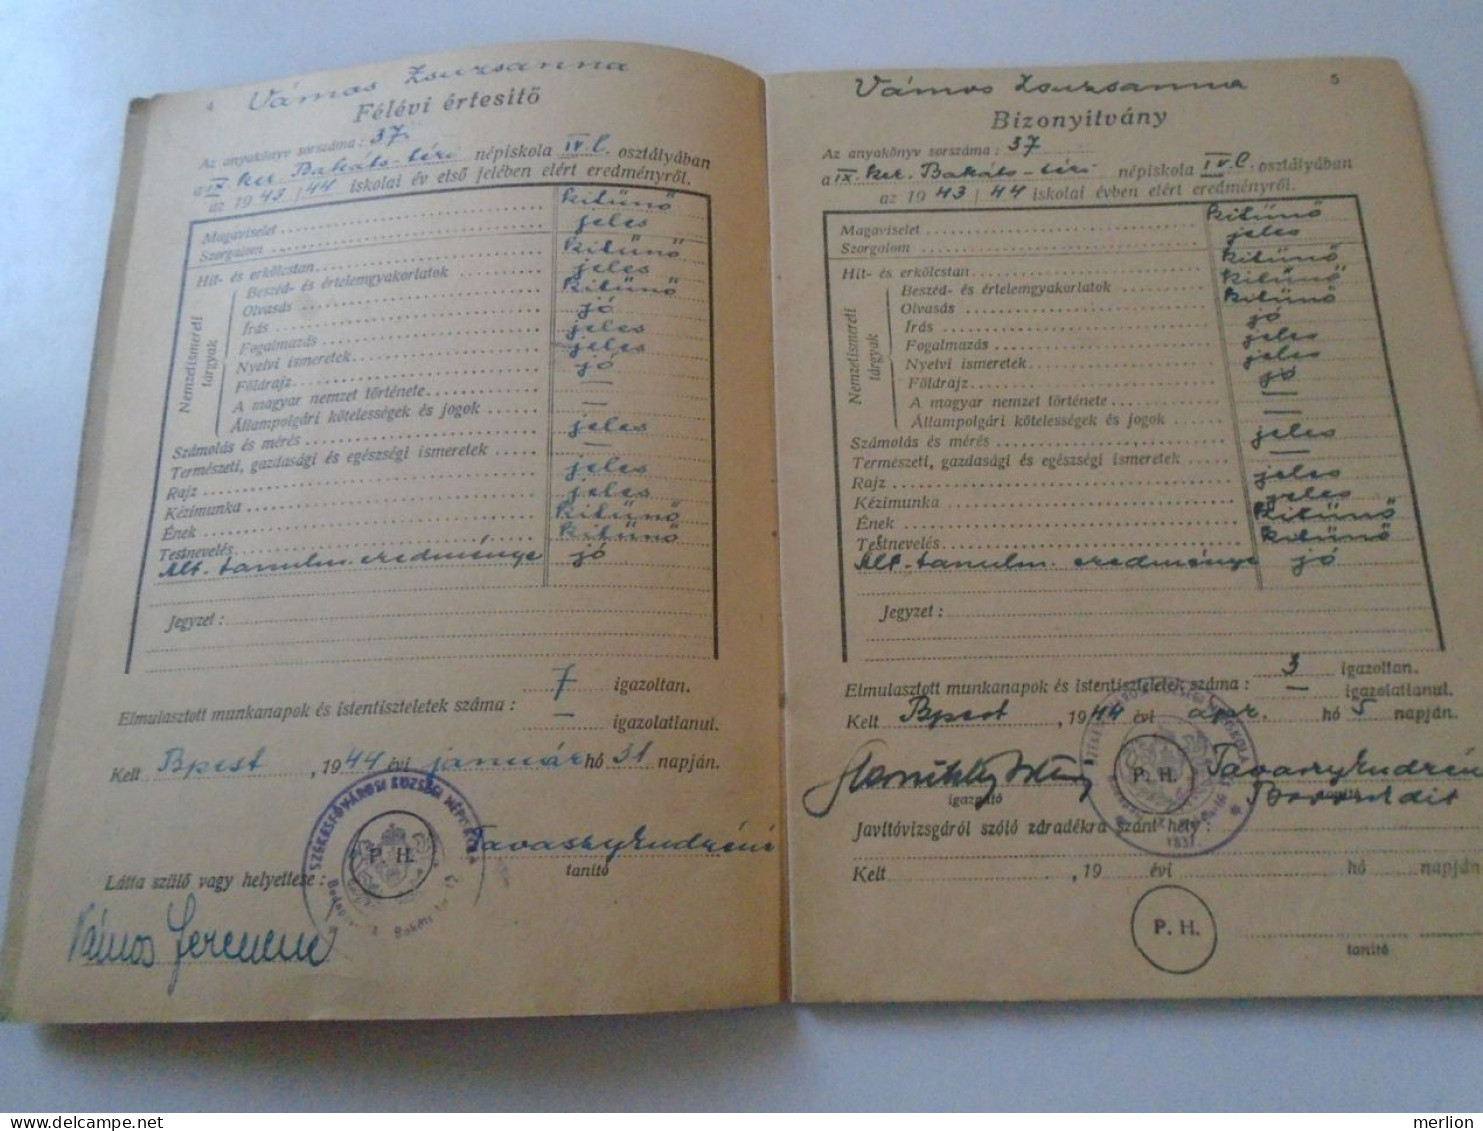 4 Vámos Zsuzsanna
Félévi értesitő
Az anyakönyv sorszáma: 37.
a IX. ker. Bakáts-téri népiskola IV. C. osztályában
az 1943/44 iskolai év első felében elért eredményről.
Magaviselet kitünő
Szorgalom jeles
Hit- és erkölcstan kitünő
Nemzetismereti tárgyak
Beszéd- és értelemgyakorlatok jeles
Olvasás kitünő
Írás jó
Fogalmazás jeles
Nyelvi ismeretek jeles
Földrajz jó
A magyar nemzet története —
Állampolgári kötelességek és jogok —
Számolás és mérés jeles
Természeti, gazdasági és egészségi ismeretek —
Rajz jeles
Kézimunka jeles
Ének kitünő
Testnevelés kitünő
Ált. tanulm. eredménye jó
Jegyzet:
Elmulasztott munkanapok és istentiszteletek száma: 7 igazoltan.
— igazolatlanul.
Kelt Bpest, 1944 évi január hó 31 napján.
SZÉKESFŐVÁROSI KÖZSÉGI NÉPISKOLA
P. H.
Tavaszy Endréné
tanító
Látta szülő vagy helyettese:
Vámos Ferencné
Vámos Zsuzsanna 5
Bizonyitvány
Az anyakönyv sorszáma: 37
a IX. ker. Bakáts-téri népiskola IV. C. osztályában
az 1943/44 iskolai évben elért eredményről.
Magaviselet kitünő
Szorgalom jeles
Hit- és erkölcstan kitünő
Nemzetismereti tárgyak
Beszéd- és értelemgyakorlatok kitünő
Olvasás kitünő
Írás jó
Fogalmazás jeles
Nyelvi ismeretek jeles
Földrajz jó
A magyar nemzet története —
Állampolgári kötelességek és jogok —
Számolás és mérés jeles
Természeti, gazdasági és egészségi ismeretek —
Rajz jeles
Kézimunka jeles
Ének kitünő
Testnevelés kitünő
Ált. tanulm. eredménye jó
Jegyzet:
Elmulasztott munkanapok és istentiszteletek száma: 3 igazoltan.
— igazolatlanul.
Kelt Bpest, 1944 évi ápr. hó 5 napján.
P. H.
Tavaszy Endréné
igazgató
tanító
Javítóvizsgáról szóló záradékra szánt hely:
Kelt , 19 évi hó napján
P. H.
tanító
merlion